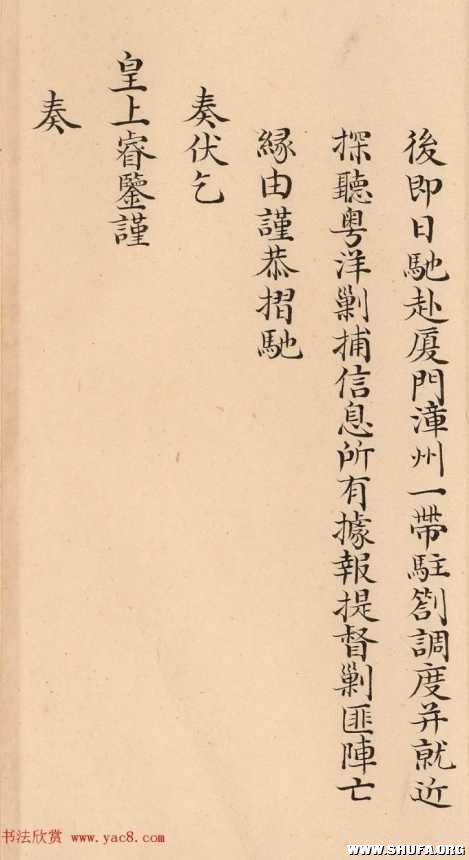 後即日馳赴厦門漳州一帶駐劄調度并就近
探聽粤洋剿捕信息所有據報提督剿匪陣亡
緣由謹恭摺馳
奏伏乞
皇上睿鑒謹
奏
书法欣赏 www.yac8.com
WWW.SHUFA.ORG